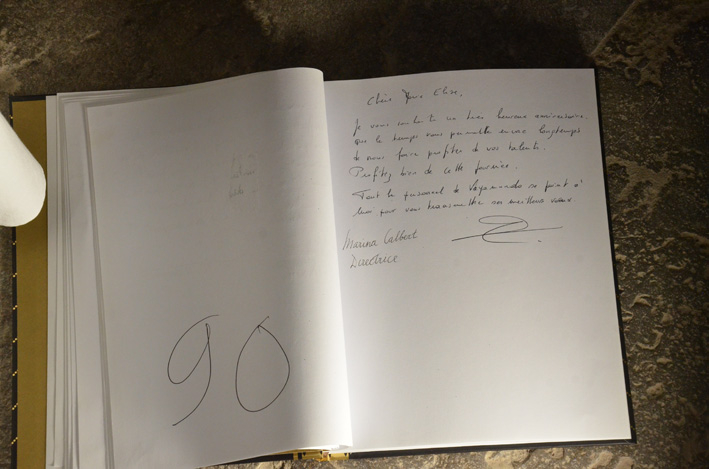 90
Chère Elise,
Je vous souhaite un très heureux anniversaire.
que le temps vous permette encore longtemps
de nous faire profiter de vos talents.
Profitez bien de cette journée.
Tout le personnel de se joint à
moi pour vous transmettre nos meilleurs vœux
Marina Galbert
Directrice